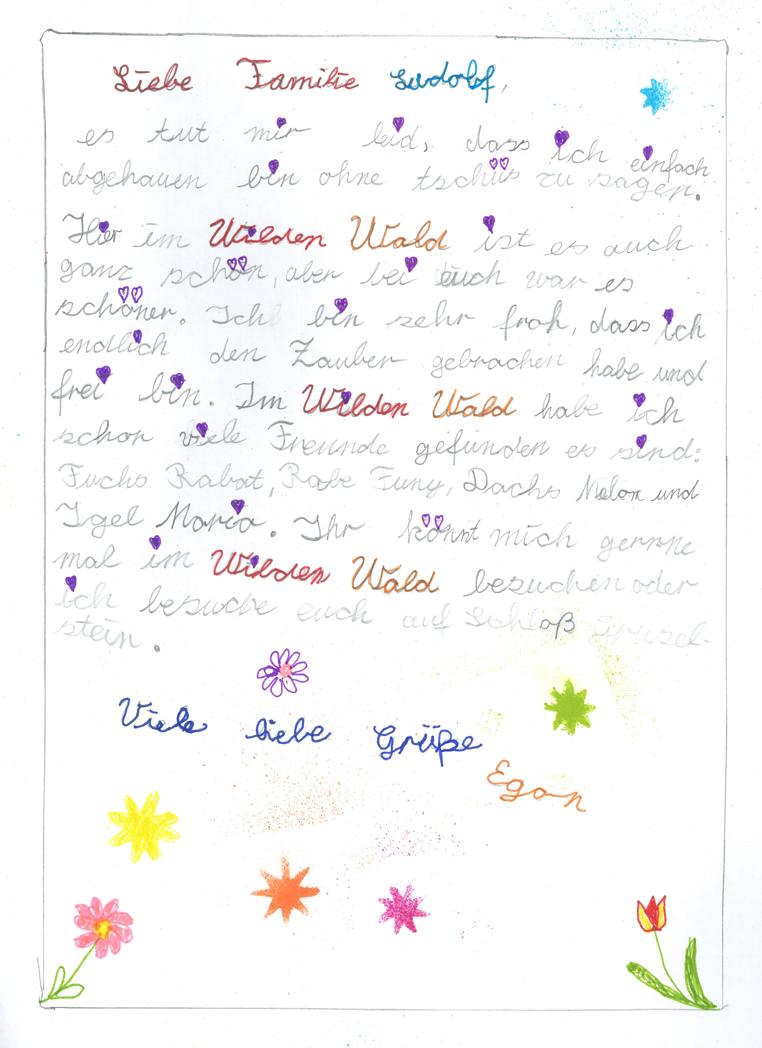 Liebe Familie Ludolf,
es tut mir leid, dass ich einfach
abgehauen bin ohne tschüs zu sagen.
Hier im Wilden Wald ist es auch
ganz schön, aber bei euch war es
schöner. Ich bin sehr froh, dass ich
endlich den Zauber gebrochen habe und
frei bin. Im Wilden Wald habe ich
schon viele Freunde gefunden es sind:
Fuchs Rabat, Rabe Funy, Dachs Melon und
Igel Maria. Ihr könnt mich gerne
mal im Wilden Wald besuchen oder
ich besuche euch auf Schloß Grusel-
stein.
Viele liebe Grüße
Egon